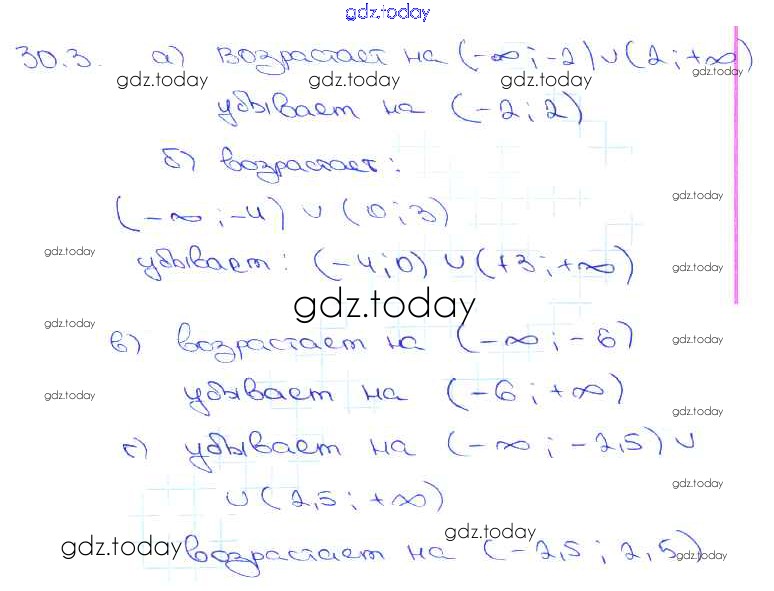 gdz.today
30.3. а) возрастает на (-∞; -2) ∪ (2; +∞)
gdz.today gdz.today gdz.today gdz.today
убывает на (-2; 2)
б) возрастает:
gdz.today
(-∞; -4) ∪ (0; 3)
gdz.today
убывает: (-4; 0) ∪ (+3; +∞)
gdz.today
gdz.today
gdz.today
в) возрастает на (-∞; -6)
gdz.today
убывает на (-6; +∞)
gdz.today
gdz.today
г) убывает на (-∞; -2,5) ∪
gdz.today
∪ (2,5; +∞)
gdz.today
gdz.today
возрастает на (-2,5; 2,5)
gdz.today